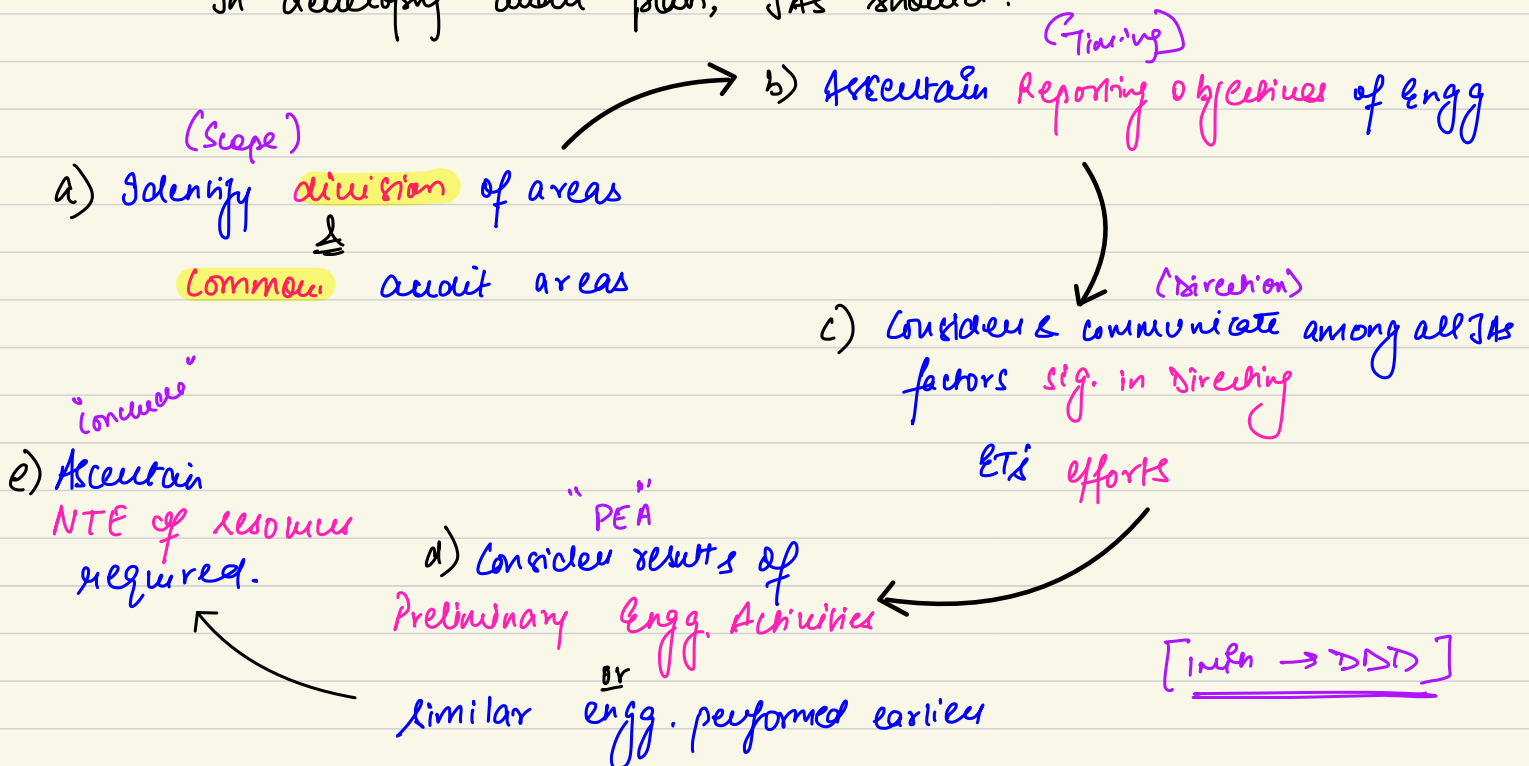 In developing audit plan, JAs should:
(Scope)
a) Identify division of areas
&
Common audit areas
(Timing)
b) Ascertain Reporting Objectives of Engg
(Direction)
c) Consider & communicate among all JAs
factors sig. in Directing
ETs efforts
"PEA"
d) Consider results of
Preliminary Engg. Activities
or
similar engg. performed earlier
"Conclude"
e) Ascertain
NTE of resources
required.
[ → DDD]